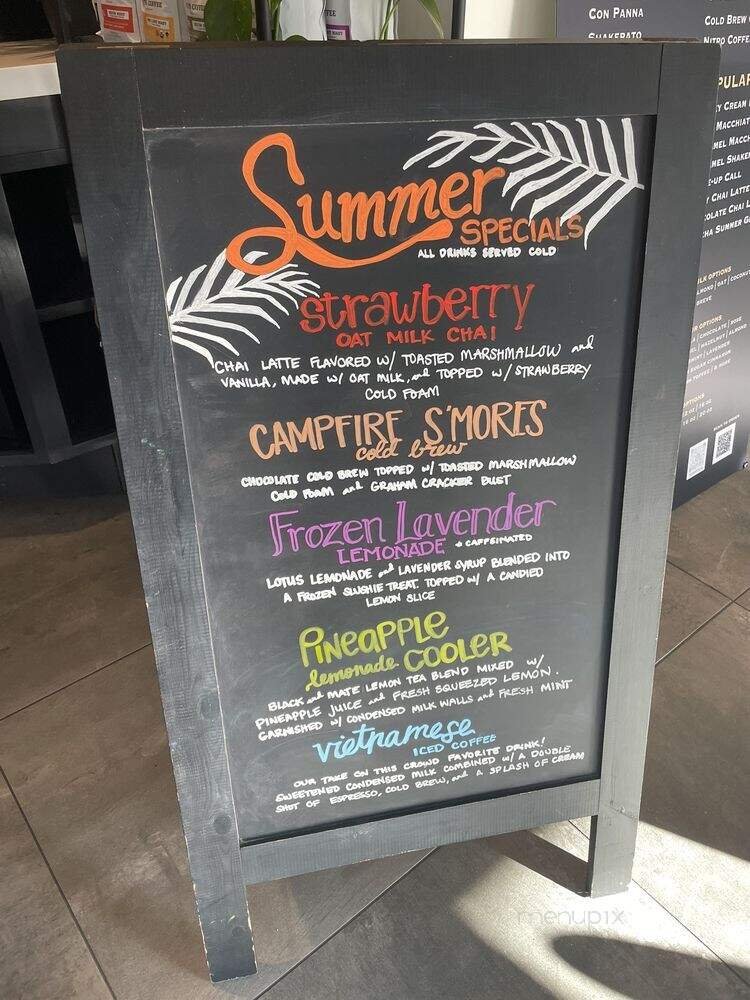 CON PANNA
SHAKERATO
COLD BREW
NITRO COFFE
Summer
SPECIALS
ALL DRINKS SERVED COLD
strawberry
OAT MILK CHAI
CHAI LATTE FLAVORED W/ TOASTED MARSHMALLOW and
VANILLA, MADE W/ OAT MILK, and TOPPED W/ STRAWBERRY
COLD FOAM
CAMPFIRE S'MORES
cold brew
CHOCOLATE COLD BREW TOPPED W/ TOASTED MARSHMALLOW
COLD FOAM and GRAHAM CRACKER DUST
Frozen Lavender
LEMONADE • CAFFEINATED
LOTUS LEMONADE and LAVENDER SYRUP BLENDED INTO
A FROZEN SLUSHIE TREAT. TOPPED W/ A CANDIED
LEMON SLICE
PINEAPPLE
lemonade COOLER
BLACK and MATE LEMON TEA BLEND MIXED W/
PINEAPPLE JUICE and FRESH SQUEEZED LEMON.
GARNISHED W/ CONDENSED MILK WALLS and FRESH MINT
vietnamese
ICED COFFEE
OUR TAKE ON THIS CROWD FAVORITE DRINK!
SWEETENED CONDENSED MILK COMBINED W/ A DOUBLE
SHOT OF ESPRESSO, COLD BREW, and A SPLASH OF CREAM
PULAR
Y CREAM
MACCHIAT
MEL MACCH
MEL SHAKE
E-UP CALL
Y CHAI LATTE
COLATE CHAI L
HA SUMMER G
LK OPTIONS
LMOND | OAT | COCONUT
BREVE
menupix